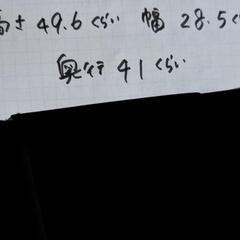 高さ 49.6 くらい 幅 28.5 く
奥行 41 くらい